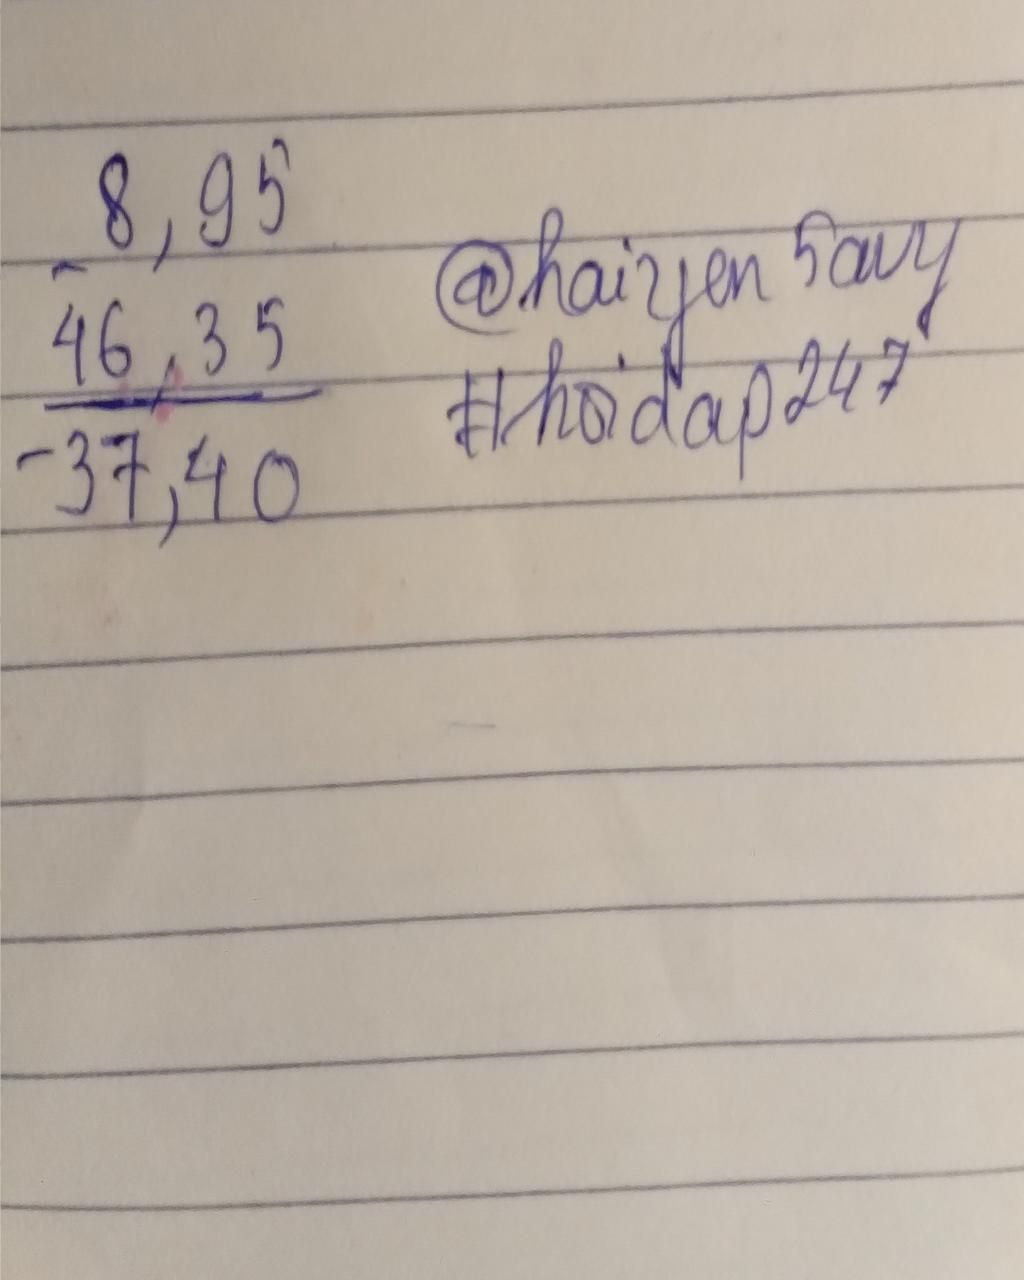 8,95
-
46,35
-37,40
@haiyen5avy
#hoidap247